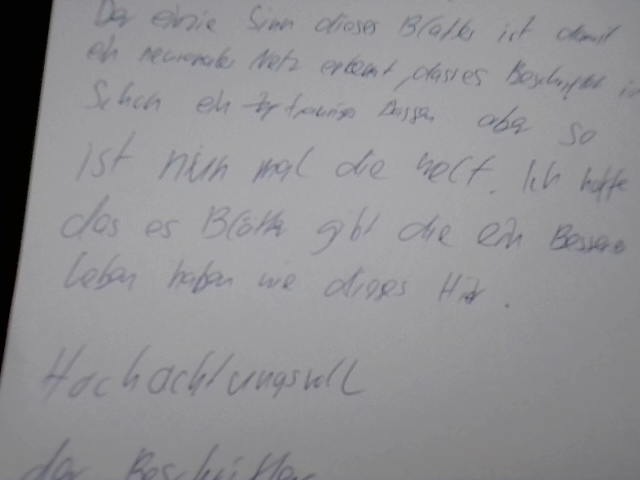 Der einzie Sinn dieses Blattes ist damit
ein neuronales Netz erkennt, das es Beschriftet
Schon ein trauriges aber so
ist nun mal die welt. Ich hoffe
das es Blätter gibt die ein Besseres
Leben haben wie dieses Hier.
Hochachtungsvoll
der Beschrifter